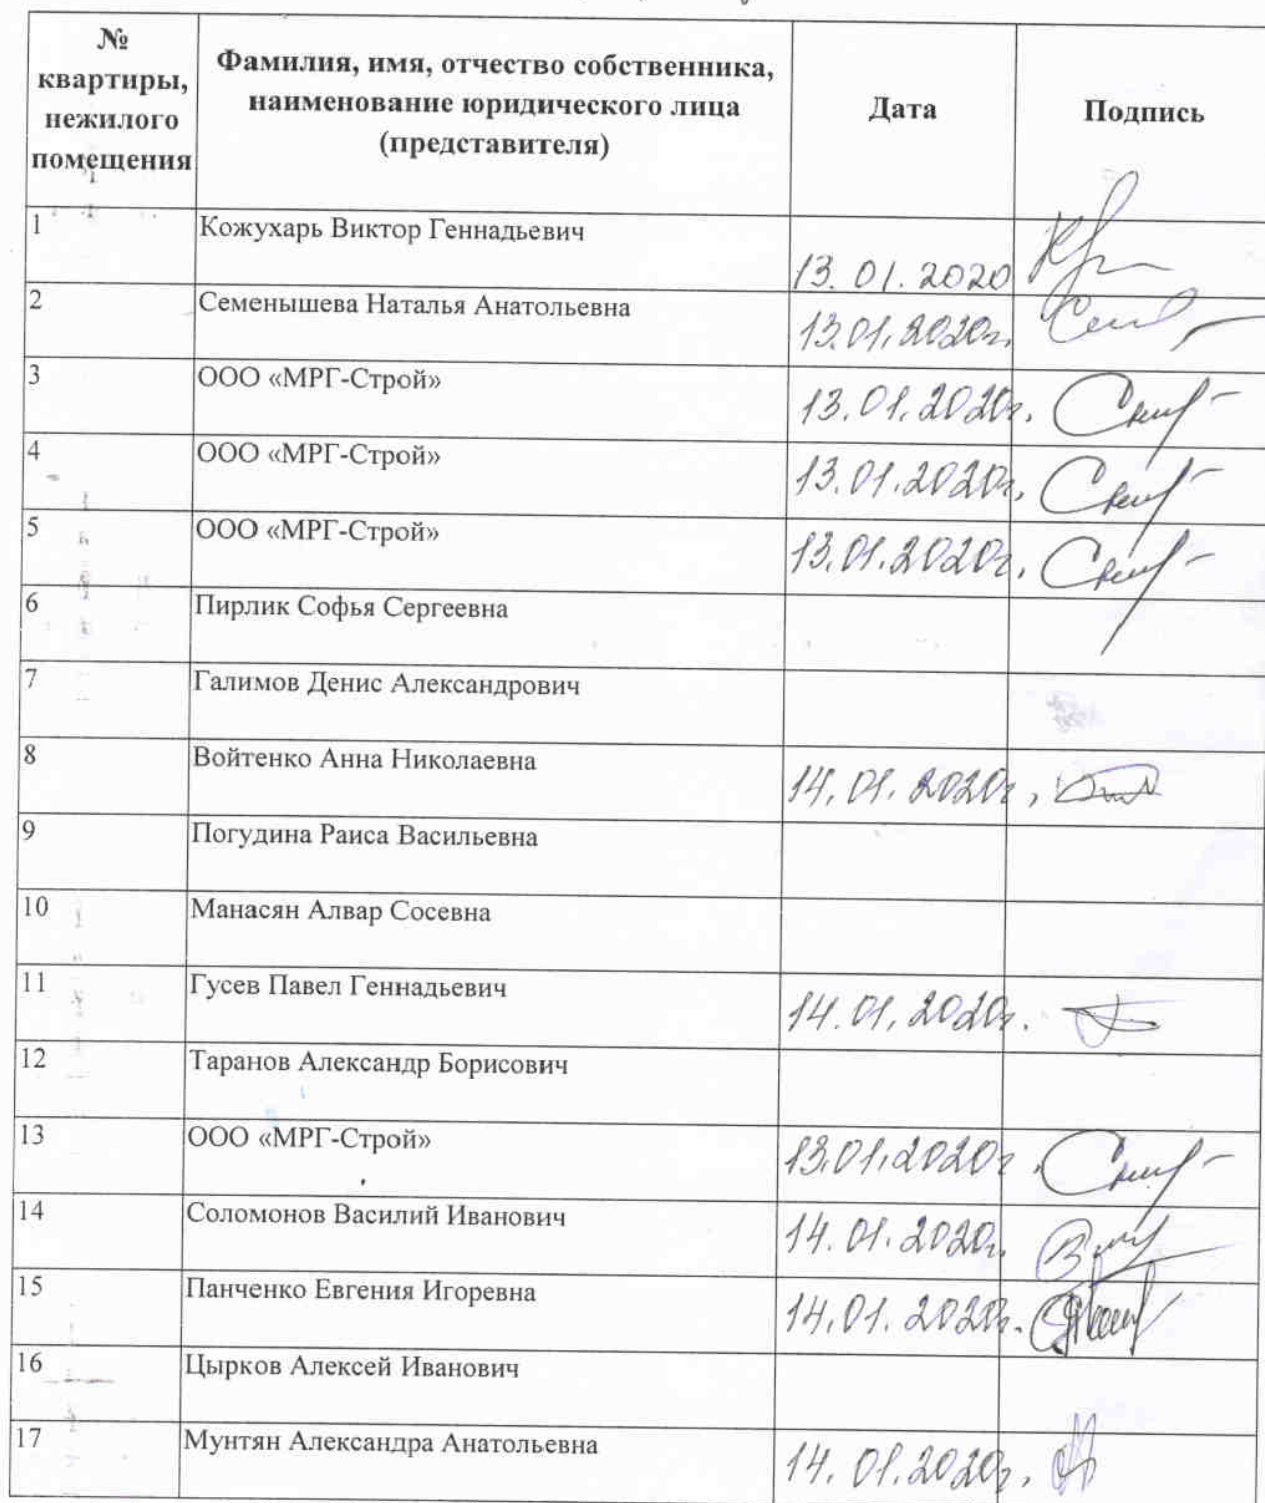 №
квартиры,
нежилого
помещения
Фамилия, имя, отчество собственника,
наименование юридического лица
(представителя)
Дата
Подпись
1 Кожухарь Виктор Геннадьевич 13.01.2020
2 Семенышева Наталья Анатольевна 13.01.2020г.
3 ООО «МРГ-Строй» 13.01.2020г.
4 ООО «МРГ-Строй» 13.01.2020г.
5 ООО «МРГ-Строй» 13.01.2020г.
6 Пирлик Софья Сергеевна
7 Галимов Денис Александрович
8 Войтенко Анна Николаевна 14.01.2020г.
9 Погудина Раиса Васильевна
10 Манасян Алвар Сосевна
11 Гусев Павел Геннадьевич 14.01.2020г.
12 Таранов Александр Борисович
13 ООО «МРГ-Строй» 13.01.2020г.
14 Соломонов Василий Иванович 14.01.2020г.
15 Панченко Евгения Игоревна 14.01.2020г.
16 Цырков Алексей Иванович
17 Мунтян Александра Анатольевна 14.01.2020г.